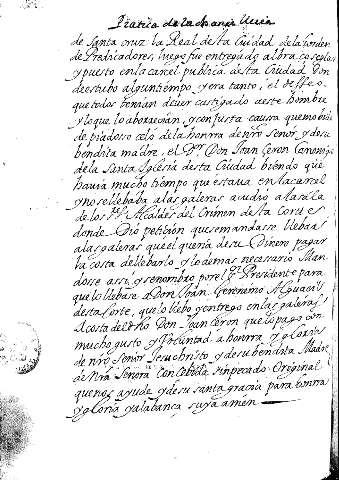 de Santa cruz la Real desta Ciudad de la horden
de Predicadores, luego fue entregado al braço seglar
y puesto en la carcel publica desta Ciudad Don
de estubo algun tiempo, y era tanto, el desseo
que todos tenian de ver castigado a este hombre
y lo que lo aborrecian, y con justa causa que movido
de piadoso celo de la honrra de nro señor, y de su
bendita madre, el Dor Don Joan Ceron Canonigo
de la Santa Iglesia desta Ciudad biendo que
havia mucho tiempo que estava en la carcel
y no se llebaba a las galeras acudio a la sala
de los Alcaldes del Crimen desta Corte
donde Dio petiçion que mandasse llebar
a las galeras que el queria de su Dinero pagar
la costa de llebarlo y lo demas necessario Man
dose assi, y se nombro por el Presidente para
que lo llebase a Don Joan Geronimo Alguacil
desta Corte, que lo llebo y entrego en las galeras
a costa del dho Don Joan Ceron que lo pago con
mucho gusto y Voluntad a honrra y gloria
de nro Señor Jesuchristo y de su bendita Madre
Señora Concebida sin pecado Original
que nos ayude y de su santa gracia para honrra
y gloria y alabança suya amen